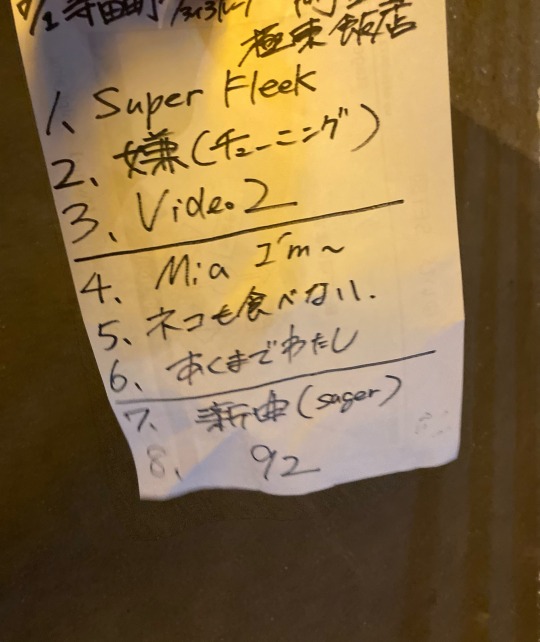 寺田町
極東飯店
1、Super Fleek
2、嫌(チューニング)
3、Video2
4、Mia I'm~
5、ネコも食べない.
6、あくまでわたし
7、新曲(sager)
8、92